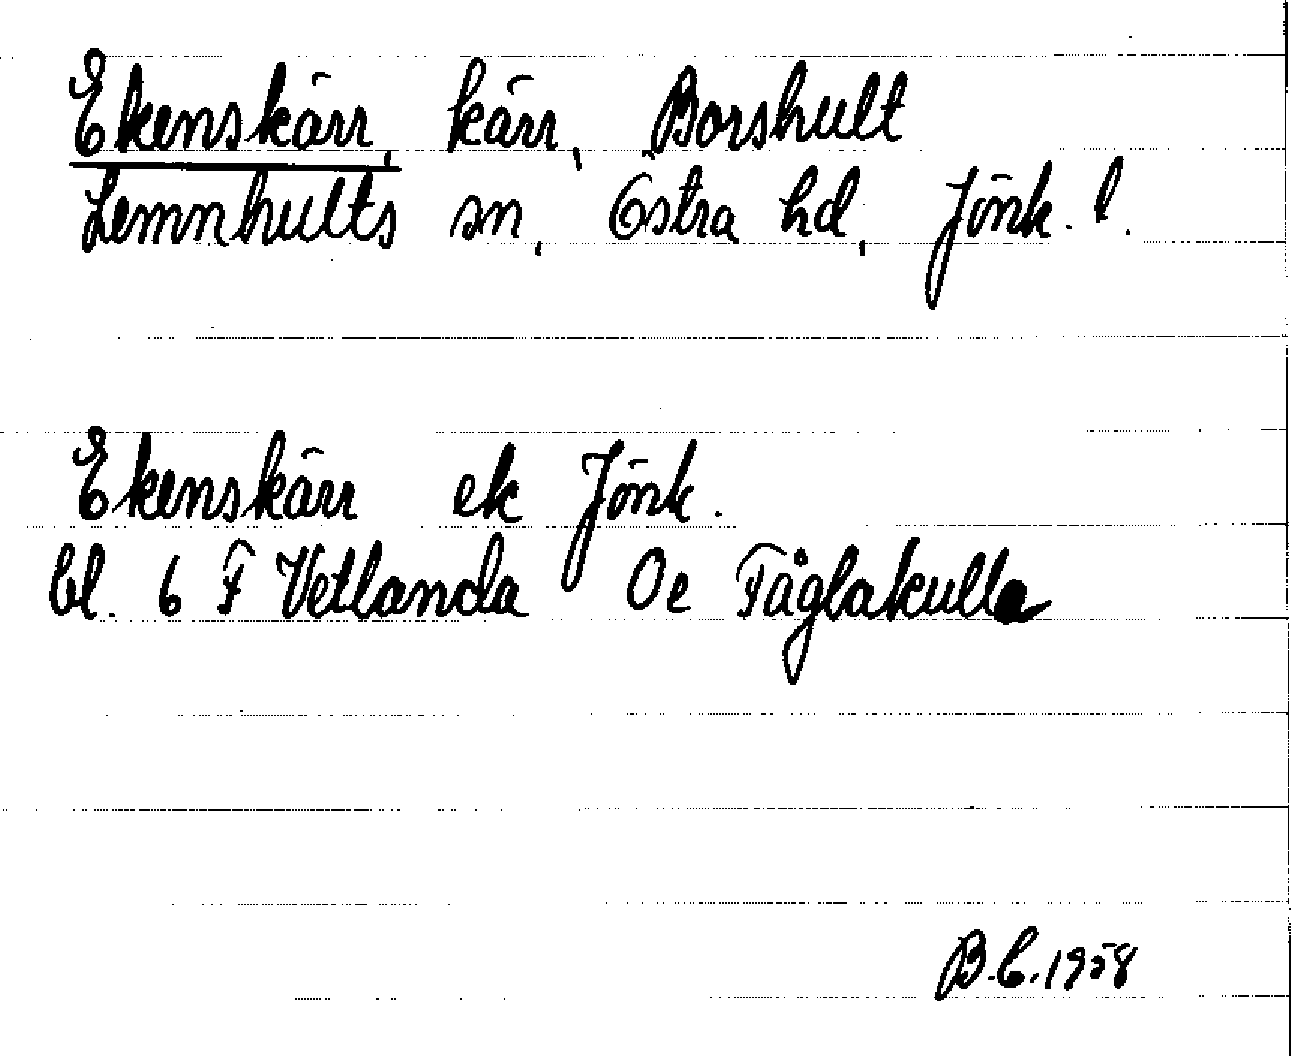 Ekenskärr, kärr, Borshult
Lemnhults sn, Östra hd, Jönk. l.
Ekenskärr ek Jönk.
bl. 6 F Vetlanda Oe Fåglakulla
B.C. 1958